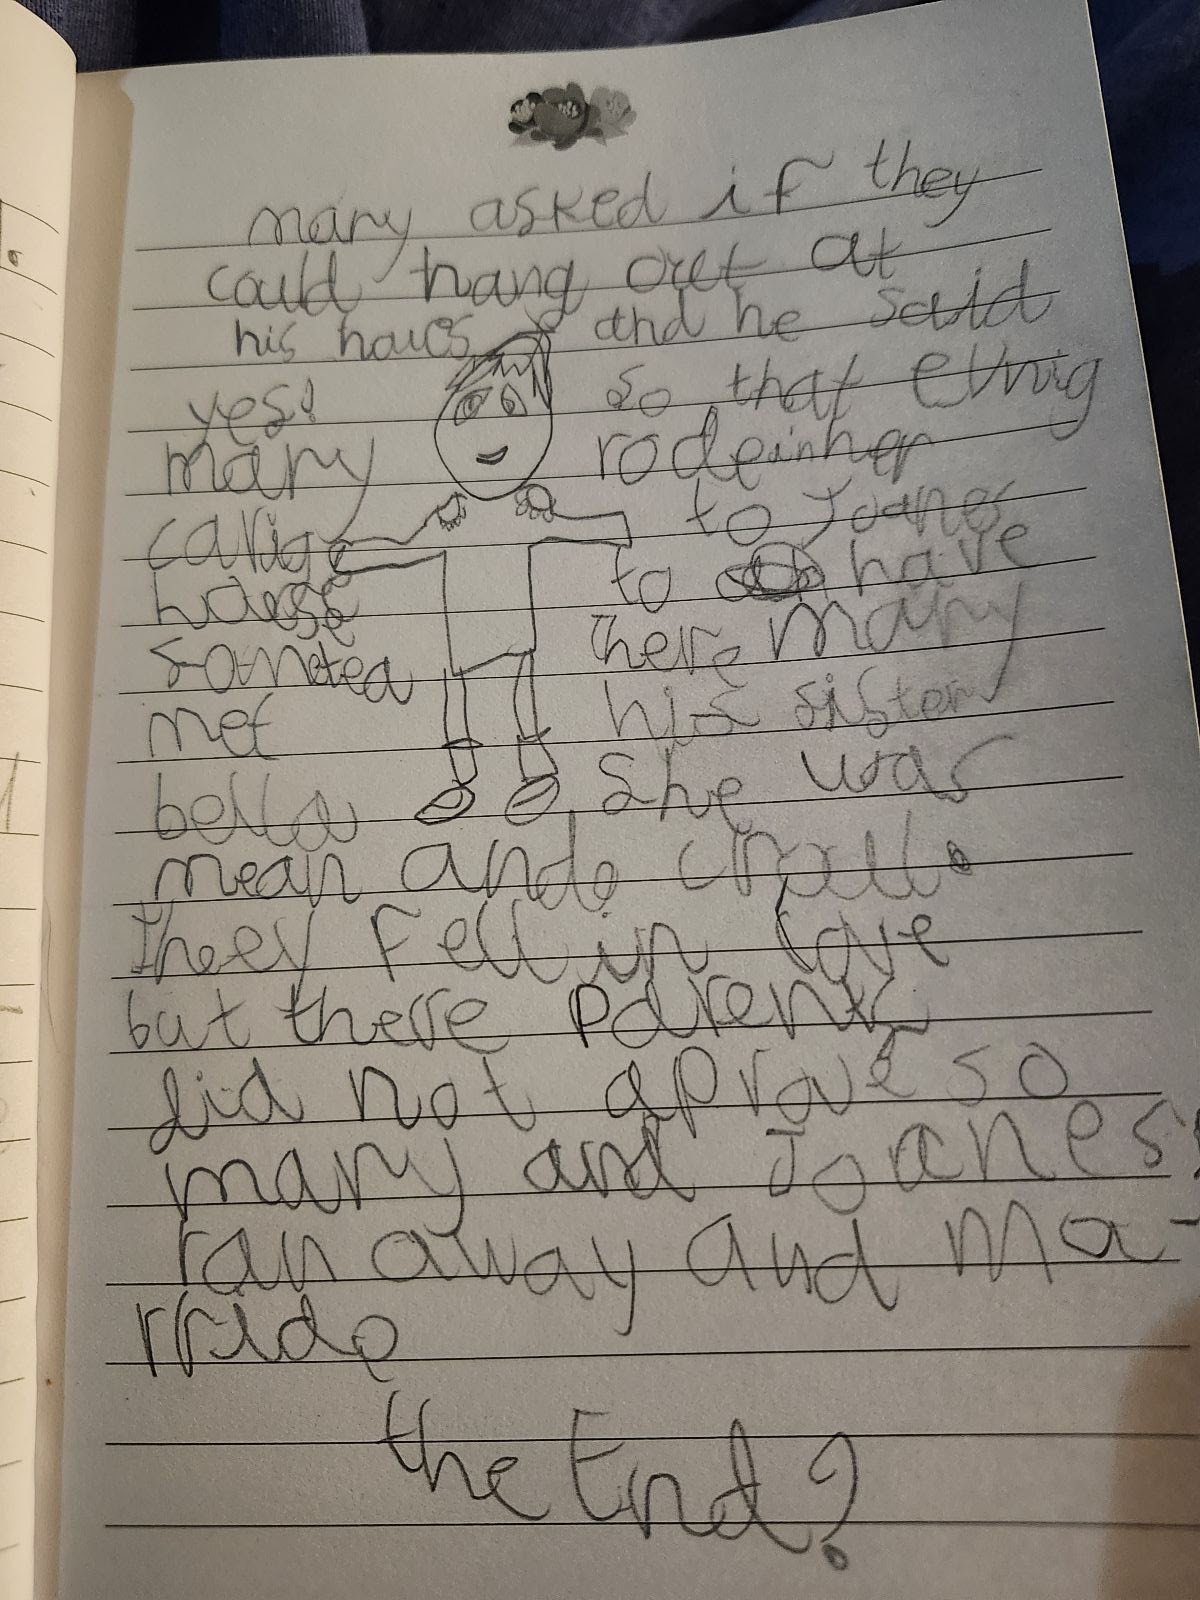 mary asked if they
could hang out at
his houes and he said
yes! so that evnig
mary rode in her
carige to Joanes
house to have
some tea there mary
met his sister
bella she was
mean and crall.
they fell in love
but there parents
did not aprove so
mary and Joanes
ran away and ma-
rride
the End?